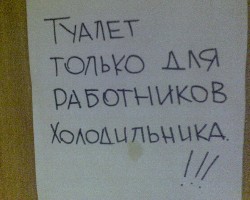 ТУАЛЕТ
ТОЛЬКО ДЛЯ
РАБОТНИКОВ
ХОЛОДИЛЬНИКА.
!!!